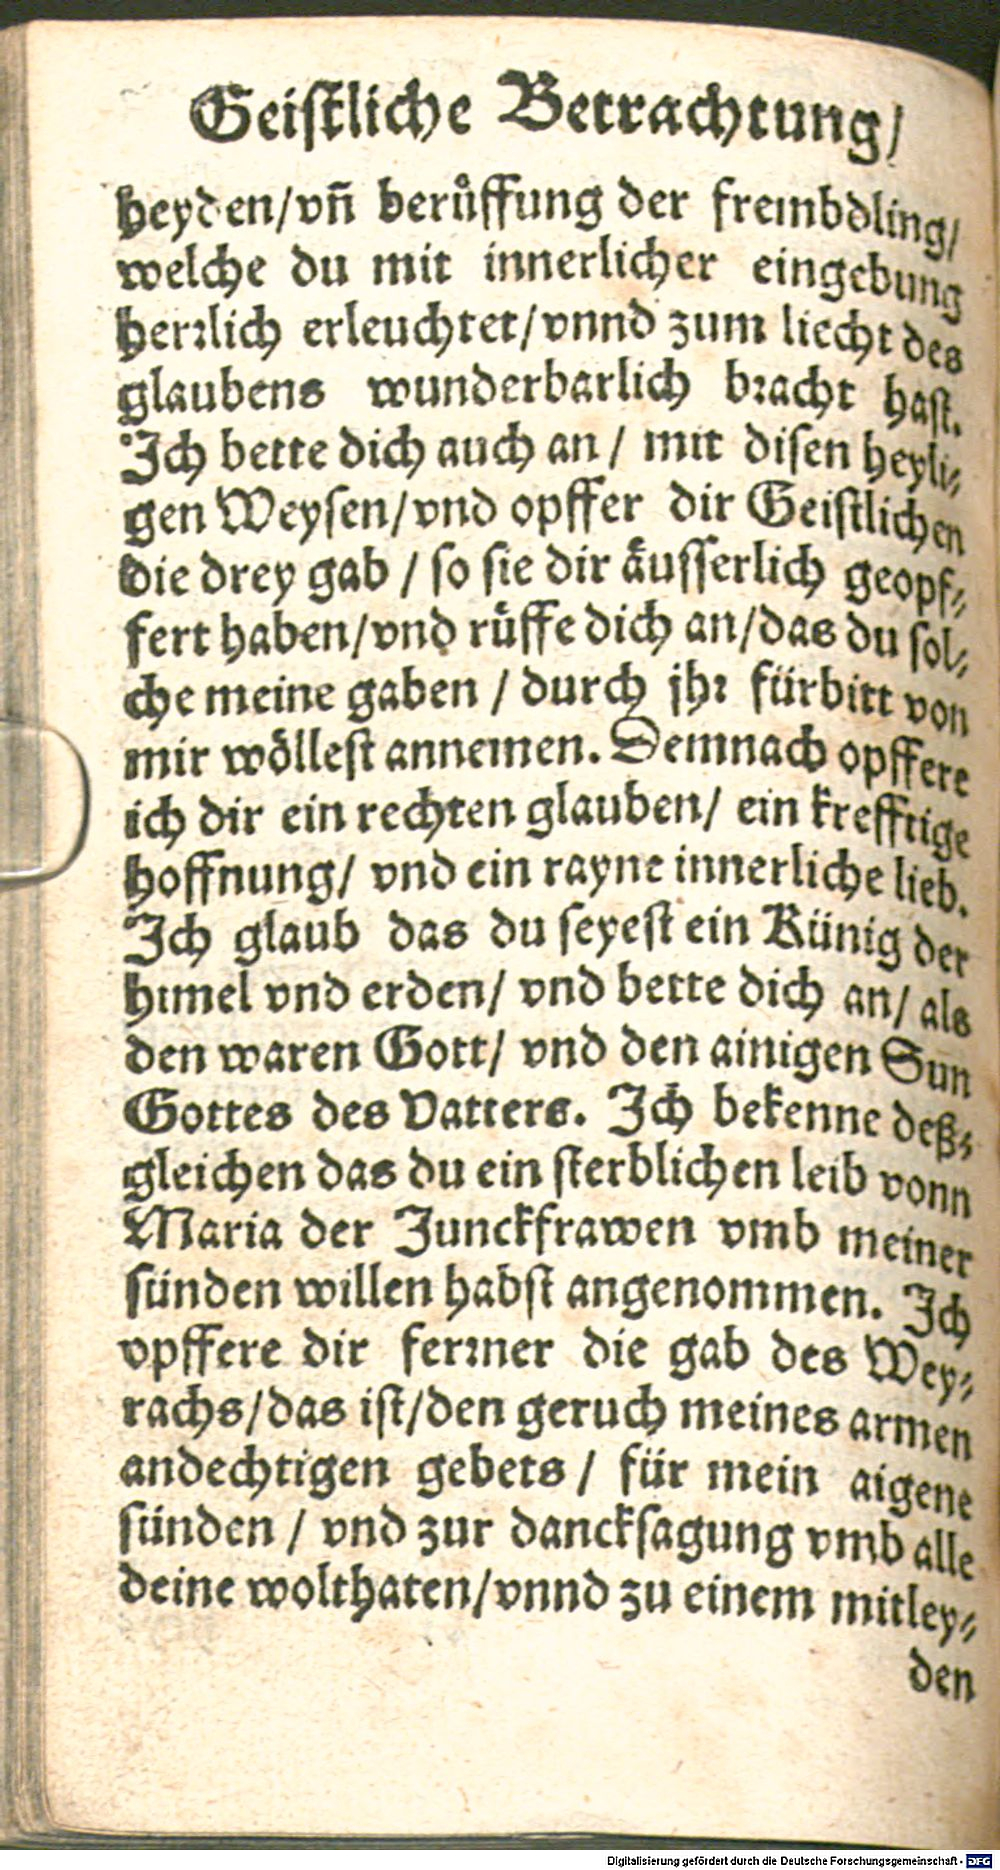 Geistliche Betrachtung/
heyden/vñ berůffung der frembdling/
welche du mit innerlicher eingebung
herꝛlich erleuchtet/vnnd zum liecht des
glaubens wunderbarlich bꝛacht hast.
Ich bette dich auch an/ mit disen heyli⸗
gen Weysen/vnd opffer dir Geistlichen
die drey gab / so sie dir aͤusserlich geopf⸗
fert haben/vnd ruͤffe dich an/das du sol⸗
che meine gaben / durch jhꝛ fürbitt von
mir woͤllest annemen. Demnach opffere
ich dir ein rechten glauben/ ein krefftige
hoffnung/ vnd ein rayne innerliche lieb.
Ich glaub das du seyest ein Künig der
himel vnd erden/ vnd bette dich an/ als
den waren Gott/ vnd den ainigen Sun
Gottes des Vatters. Ich bekenne deß⸗
gleichen das du ein sterblichen leib vonn
Maria der Junckfrawen vmb meiner
sünden willen habst angenommen. Ich
opffere dir ferꝛner die gab des Wey⸗
rachs/das ist/den geruch meines armen
andechtigen gebets / für mein aigene
sünden / vnd zur dancksagung vmb alle
deine wolthaten/vnnd zu einem mitley⸗
den
Digitalisierung gefördert durch die Deutsche Forschungsgemeinschaft - DFG